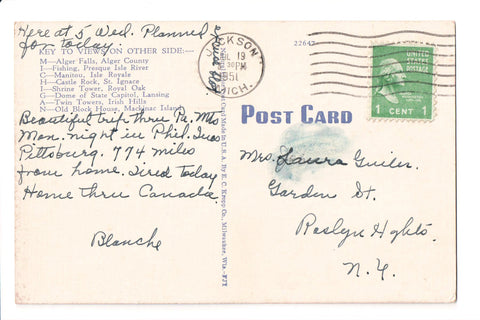 Here at 5 Wed. Planned
for today.
KEY TO VIEWS ON OTHER SIDE:—
M—Alger Falls, Alger County
I—Fishing, Presque Isle River
C—Manitou, Isle Royale
H—Castle Rock, St. Ignace
I—Shrine Tower, Royal Oak
G—Dome of State Capitol, Lansing
A—Twin Towers, Irish Hills
N—Old Block House, Mackinac Island
Beautiful trip thru Pa. Mts
Mon. night in Phil. Tues
Pittsburg. 774 miles
from home. Tired today
Home thru Canada
Blanche
22647
JACKSON
19
PM
1951
MICH.
UNITED
STATES
POSTAGE
1 CENT 1
Made in U.S.A. by E. C. Kropp Co., Milwaukee, Wis.
POST CARD
Mrs. Laura Guiler
Garden St.
Roslyn Hghts.
N.Y.